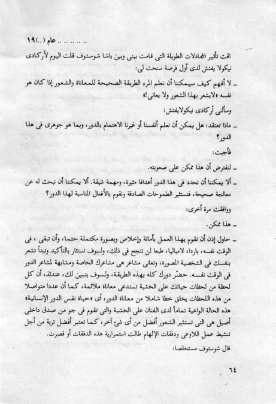 .. .. .. .. .. عام (..)١٩
تحت تأثير المجادلات الطويلة التي قامت بيني وبين باشا شوستوف قلت اليوم لأركادي
نيكولايفتش لدى أول فرصة سنحت لي:
ـ لا أفهم كيف سيمكننا أن نعلم المرء الطريقة الصحيحة للمعاناة والشعور إذا كان هو
نفسه «لايشعر بهذا الشعور ولا يعاني»؟
وسألني أركادي نيكولايفتش:
ـ ماذا تعتقد: هل يمكن أن نعلم أنفسنا أو غيرنا الاهتمام بالدور، وبما هو جوهري في هذا
الدور؟
فأجبت:
ـ لنفترض أن هذا ممكن على صعوبته.
ـ ألا يمكننا أن نحدد في هذا الدور أهدافا مثيرة، ومهمة شيقة. ألا يمكننا أن نبحث له عن
معالجة صحيحة، فنستثير الطموحات الصادقة ونقوم بالأفعال المناسبة لهذا الدور؟
ووافقت مرة أخرى:
ـ هذا ممكن.
ـ حاول إذن أن تقوم بهذا العمل بأمانة وإخلاص وبصورة مكتملة حتما، وأن تبقى، في
الوقت نفسه، باردا، لامباليا، طبعا لن تنجح في ذلك، ولسوف تستثار بالتأكيد وتبدأ تشعر
بنفسك في الشخصية المصورة، وتعاني مشاعر هي مشاعرك الخاصة ومشابهة لمشاعر الدور
في الوقت نفسه. حضّر دورك كله بهذه الطريقة، ولسوف يتبين لك، عندئذ، أن كل
لحظة من لحظات حياتك على الخشبة تستدعي معاناة ملائمة، كما أن عددا متواصلا
من هذه اللحظات يخلق خطا شاملا من معاناة الدور، أي «حياة نفس الدور الإنسانية»
هذه الحالة الواعية تماماً لدى الفنان على الخشبة والتي تقوم في جو من صدق داخلي
أصيل هي التي تستثير الشعور أفضل من أي شيء آخر، كما تعتبر أفضل تربة من أجل
تنشيط عمل اللاوعي ودفقات الإلهام طالت استمرارية هذه الدفقات أو قصرت.
قال شوستوف مستخلصا:
٦٤